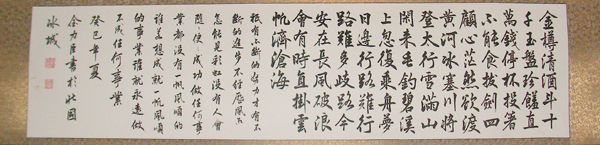 金樽清酒斗十
千玉盤珍饈直
萬錢停杯投箸
不能食拔劍四
顧心茫然欲渡
黃河冰塞川將
登太行雪滿山
閑來垂釣碧溪
上忽復乘舟夢
日邊行路難行
路難多歧路今
安在長風破浪
會有時直掛雲
帆濟滄海
有不斷的努力才有不
斷的進步不經歷風雨
怎能見彩虹沒有人會
隨々便々成功做任何事
業都沒有一帆風順的
誰想成就一帆風順
的事業誰就永遠做
不成任何事業
癸巳年夏
余力臣書於北國
冰城